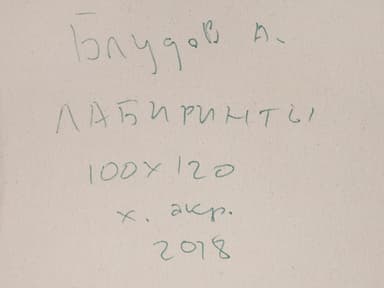 Блудов А.
ЛАБИРИНТЫ
100х120
х. акр.
2018